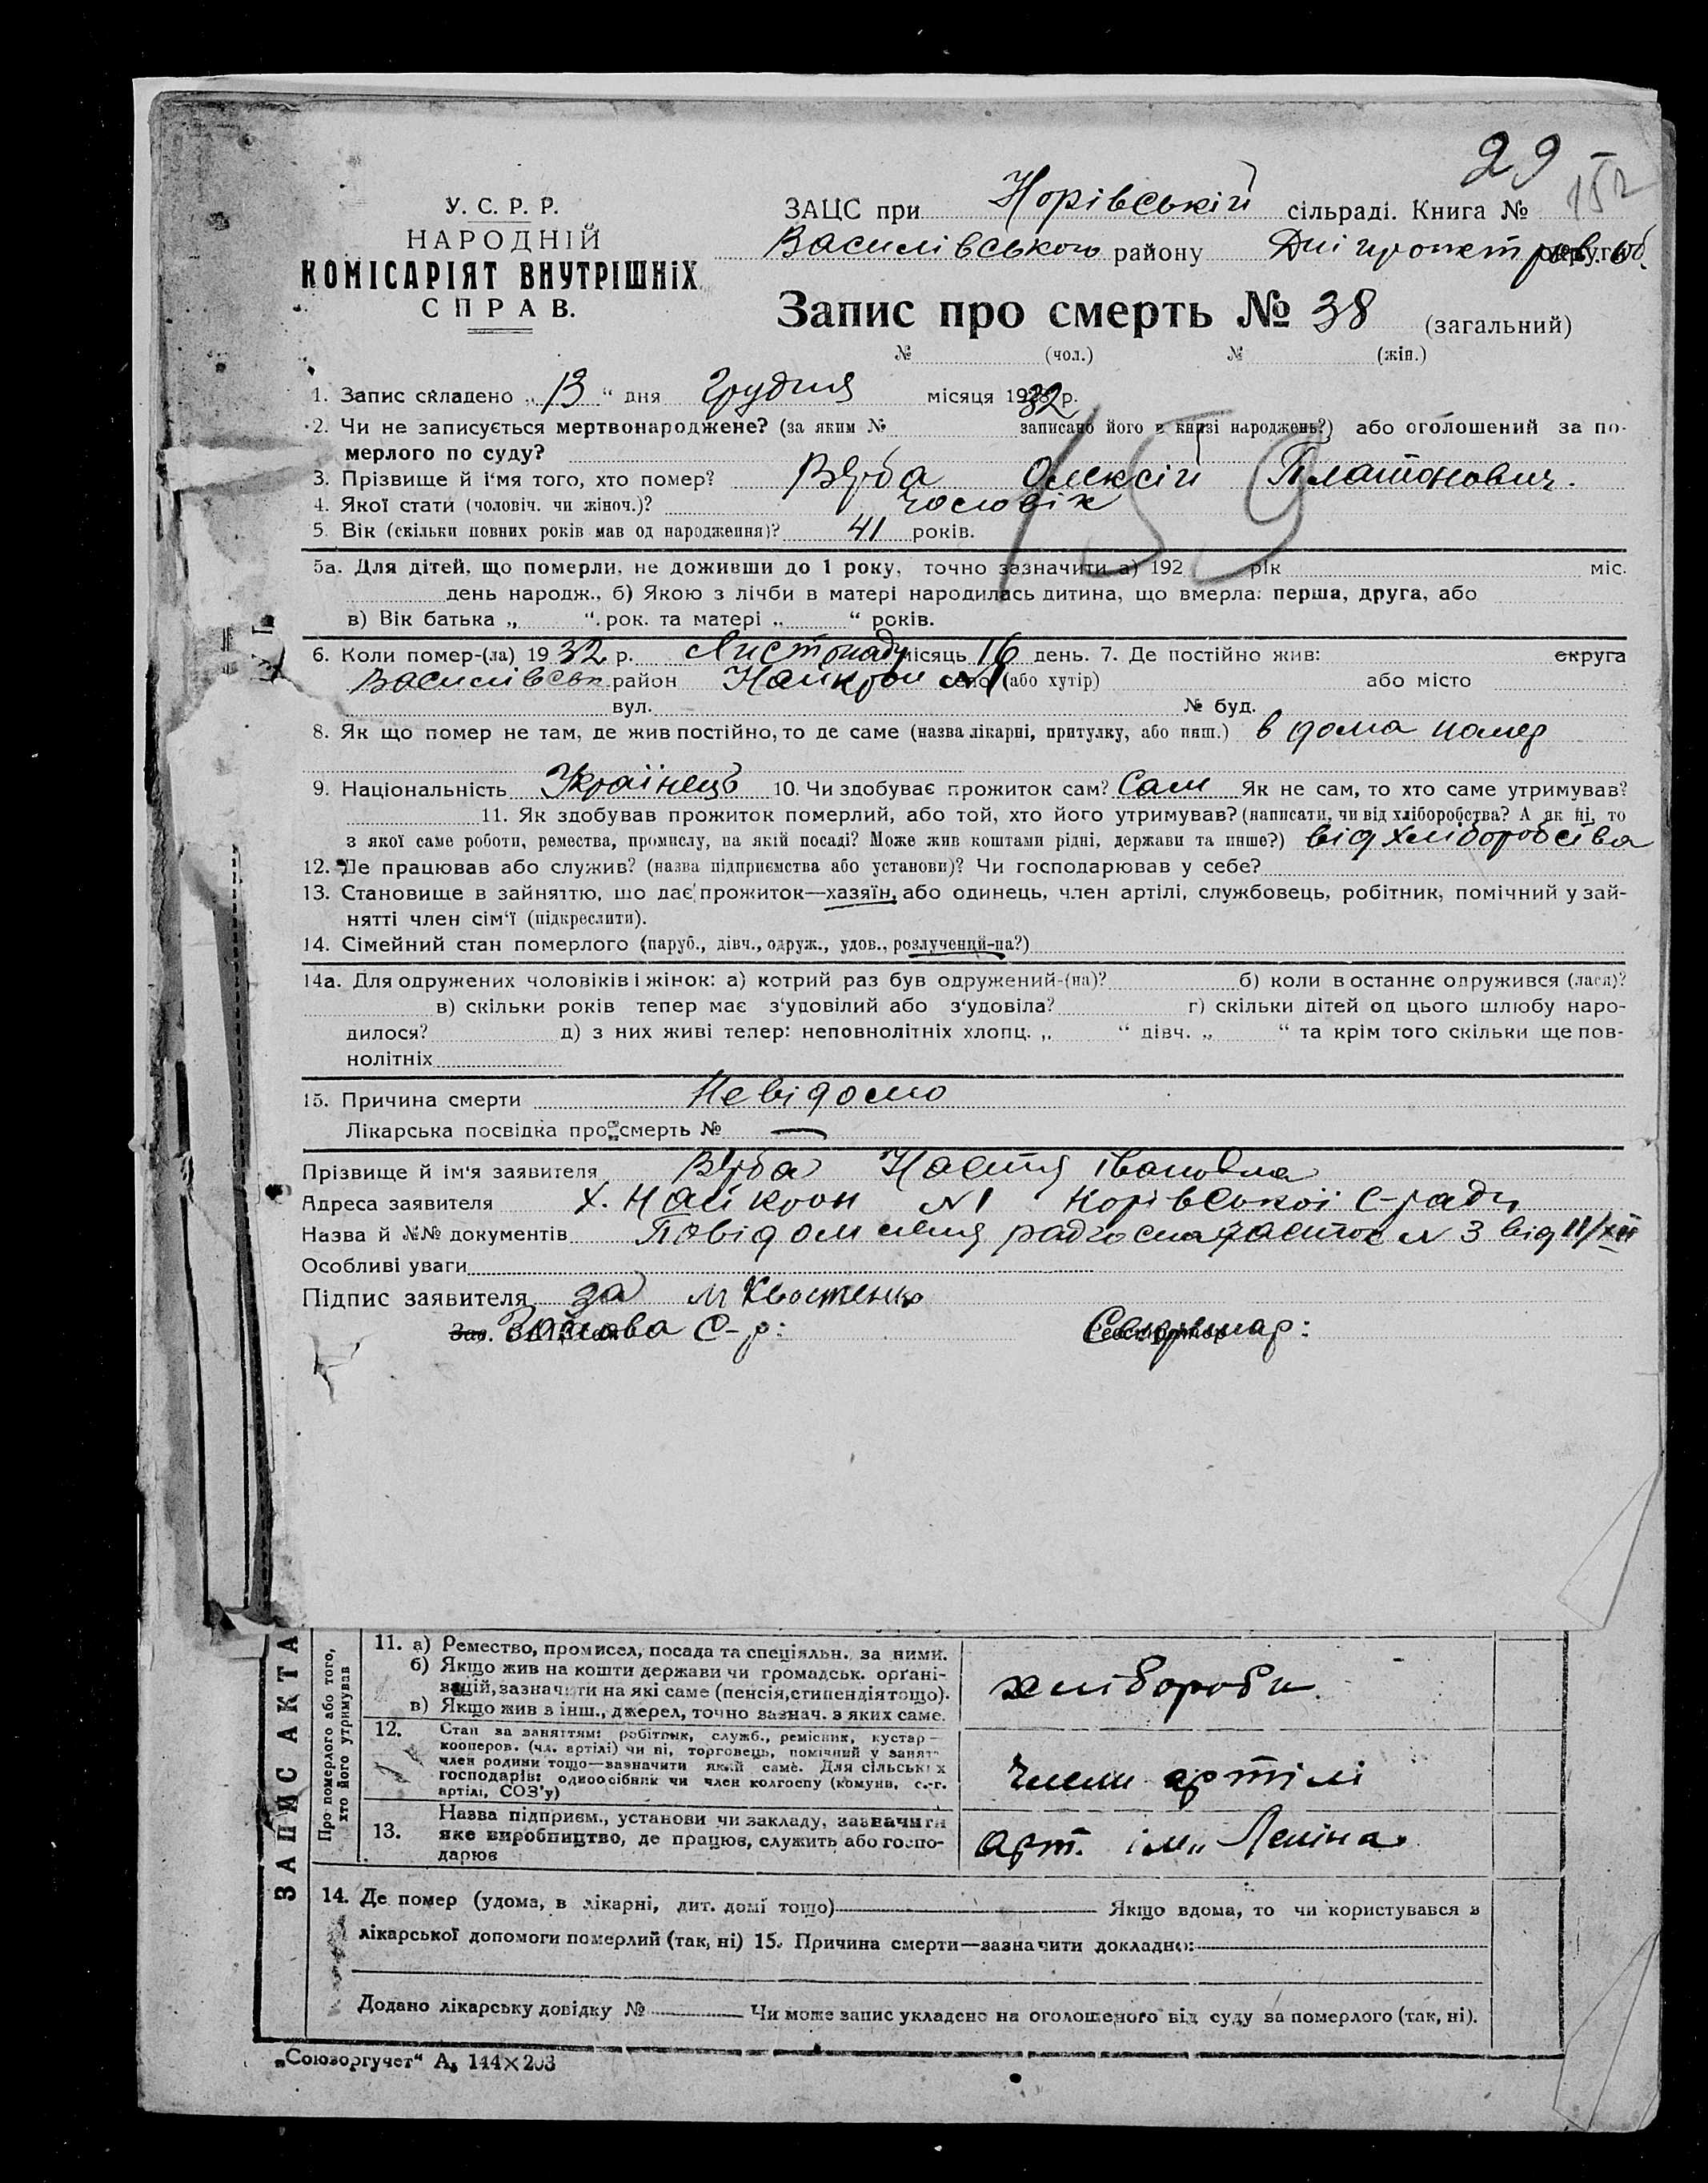 29
152
У. С. Р. Р.
НАРОДНІЙ
КОМІСАРІЯТ ВНУТРІШНІХ
СПРАВ.
ЗАЦС при Норівській сільраді. Книга №
Василівського району Дніпропетров. об.
Запис про смерть № 38 (загальний)
№ (чол.) № (жін.)
159
1. Запис складено „13“ дня Грудня місяця 1932 р.
2. Чи не записується мертвонароджене? (за яким № записано його в книзі народжень?) або оголошений за по-
мерлого по суду?
3. Прізвище й і'мя того, хто помер? Верба Олексій Платонович.
4. Якої стати (чоловіч. чи жіноч.)? чоловік
5. Вік (скільки повних років мав од народження)? 41 років.
5а. Для дітей, що померли, не доживши до 1 року, точно зазначити а) 192 рік міс.
день народж., б) Якою з лічби в матері народилась дитина, що вмерла: перша, друга, або
в) Вік батька „ “ рок. та матері „ “ років.
6. Коли помер-(ла) 1932 р. Листопаду місяць 16 день. 7. Де постійно жив: округа
Василівськ район Найкрон №1 село (або хутір) або місто
вул. № буд.
8. Як що помер не там, де жив постійно, то де саме (назва лікарні, притулку, або инш.) в дома помер
9. Національність Українець 10. Чи здобуває прожиток сам? Сам Як не сам, то хто саме утримував?
11. Як здобував прожиток померлий, або той, хто його утримував? (написати, чи від хліборобства? А як ні, то
з якої саме роботи, ремества, промислу, на якій посаді? Може жив коштами рідні, держави та инше?) від хліборобства
12. Де працював або служив? (назва підприємства або установи)? Чи господарював у себе?
13. Становище в зайняттю, що дає прожиток—хазяїн, або одинець, член артілі, службовець, робітник, помічний у зай-
нятті член сім'ї (підкреслити).
14. Сімейний стан померлого (паруб., дівч., одруж., удов., розлучений-на?)
14а. Для одружених чоловіків і жінок: а) котрий раз був одружений-(на)? б) коли в останнє одружився (лася)?
в) скільки років тепер має з'удовілий або з'удовіла? г) скільки дітей од цього шлюбу наро-
дилося? д) з них живі тепер: неповнолітніх хлопц. „ “ дівч. „ “ та крім того скільки ще пов-
нолітніх
15. Причина смерти Невідомо
Лікарська посвідка про смерть № —
Прізвище й ім'я заявителя Верба Настя Івановна
Адреса заявителя х. Найкрон №1 Норівської С-ради
Назва й №№ документів Повідомлення № 3 від 11/XII
Особливі уваги
Підпис заявителя за М Квостенко
Зав. Голова С-р: Секретар:
ЗАПИС АКТА
Про померлого або того,
хто його утримував
11. а) Ремество, промисел, посада та спеціяльн. за ними.
б) Якщо жив на кошти держави чи громадськ. орґані-
зацій, зазначити на які саме (пенсія, стипендія тощо).
в) Якщо жив з інш., джерел, точно зазнач. з яких саме.
хлібороби
12. Стан за заняттям: робітник, служб., ремісник, кустар—
кооперов. (чл. артілі) чи ні, торговець, помічний у занят-
член родини тощо—зазначити який саме. Для сільських
господарів: одноосібник чи член колгоспу (комуни, с.-г.
артілі, СОЗ'у)
Члени артілі
13. Назва підприєм., установи чи закладу, зазначити
яке виробництво, де працює, служить або госпо-
дарює
арт. ім„ Леніна
14. Де помер (удома, в лікарні, дит. домі тощо) Якщо вдома, то чи користувався з
лікарської допомоги померлий (так, ні) 15. Причина смерти—зазначити докладно:
Додано лікарську довідку № Чи може запис укладено на оголошеного від суду за померлого (так, ні).
„Союзоргучет“ А₅ 144×203